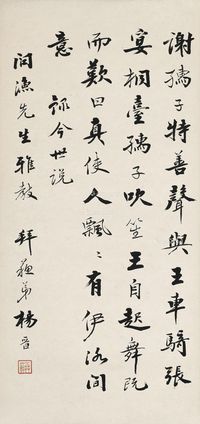 謝孺子特善聲與王車騎張
宴桐臺孺子吹笙王自起舞既
而歎曰真使人飄〻有伊洛間
意 錄今世說
問漁先生雅教 拜蘇弟楊晉